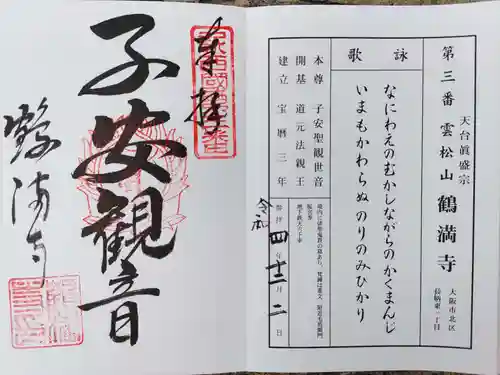 奉拝
子安観音
鶴満寺
第三番 雲松山 鶴満寺
天台眞盛宗
大阪市北区
長柄東一丁目
詠歌
なにわえのむかしながらのかくまんじ
いまもかわらぬのりのみひかり
本尊 子安聖観世音
開基 道元法親王
建立 宝暦三年
地下鉄天六下車
令和 四年 十二月 二日